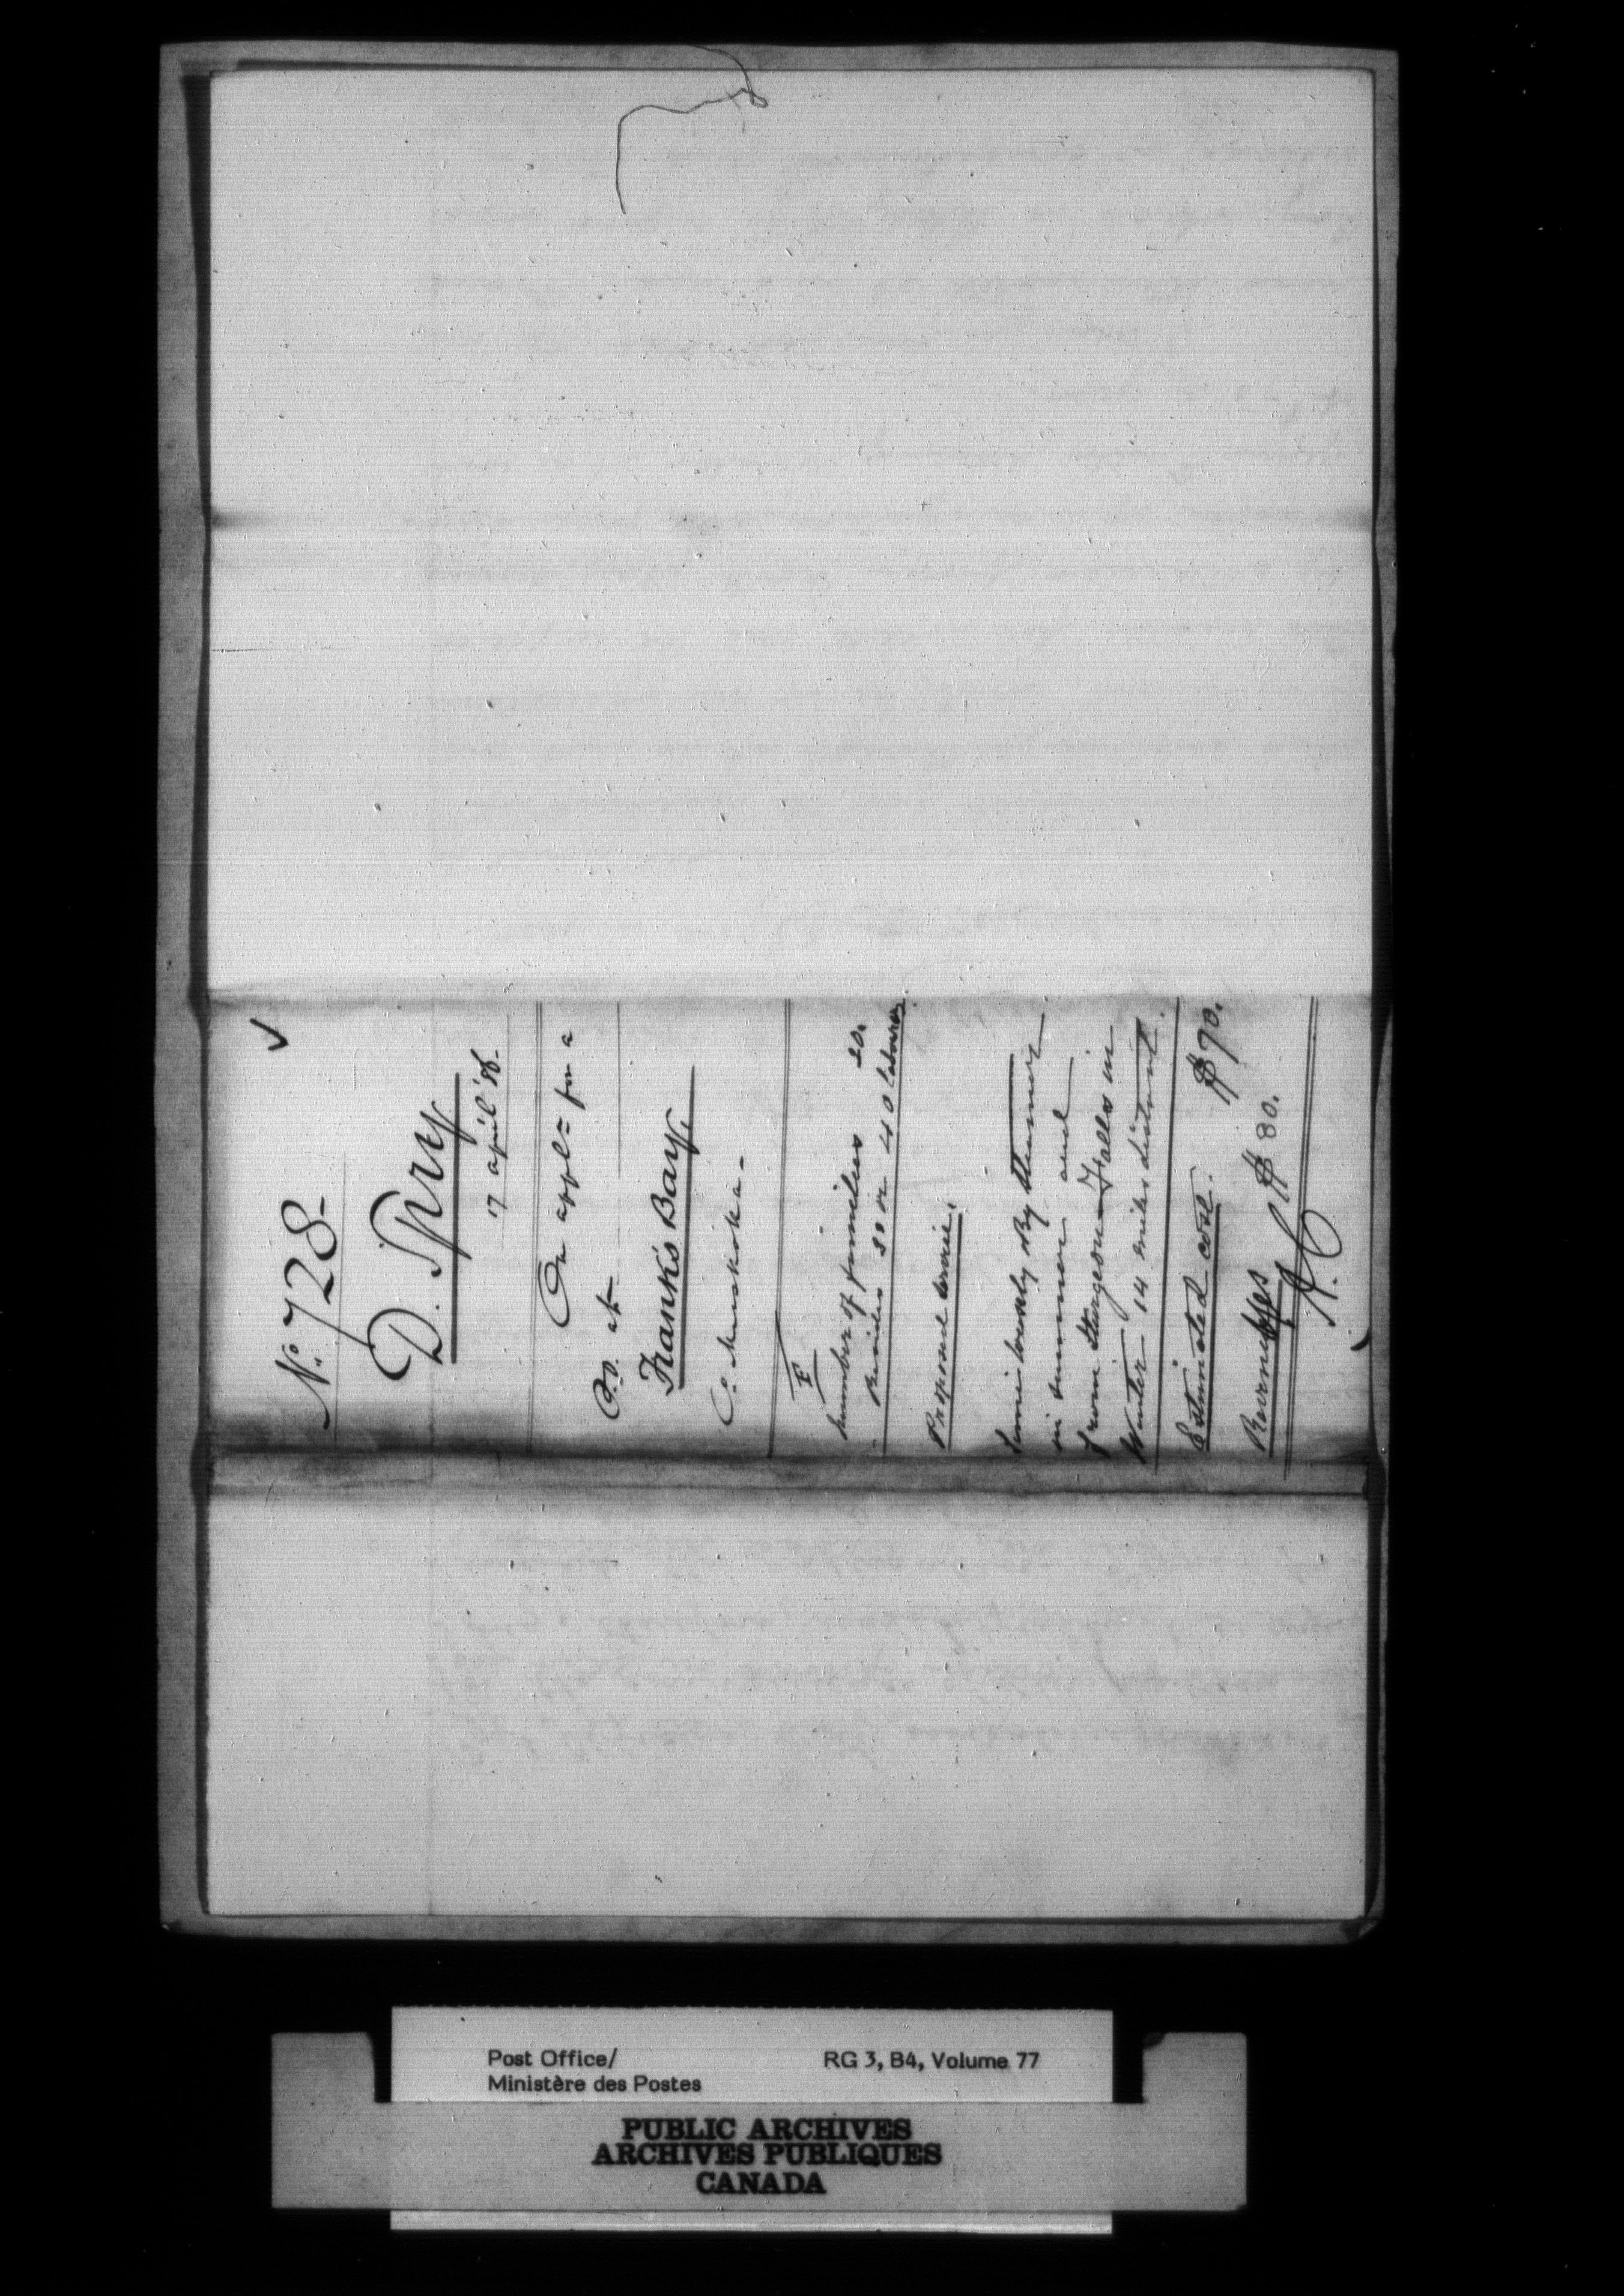 No. 728-
D. Spry
17 april '86-
On appl= for a
P.O. at
Frank's Bay,
C. Muskoka-
F
Number of families 20.
- Besides 30 or 40 labourers.
Proposed service,
Semi weekly By Steamer
in summer and
from Sturgeon Falls in
Winter 14 miles distant.
Estimated cost. $90.
Revenue $80.
Post Office/
Ministère des Postes
RG 3, B4, Volume 77
PUBLIC ARCHIVES
ARCHIVES PUBLIQUES
CANADA